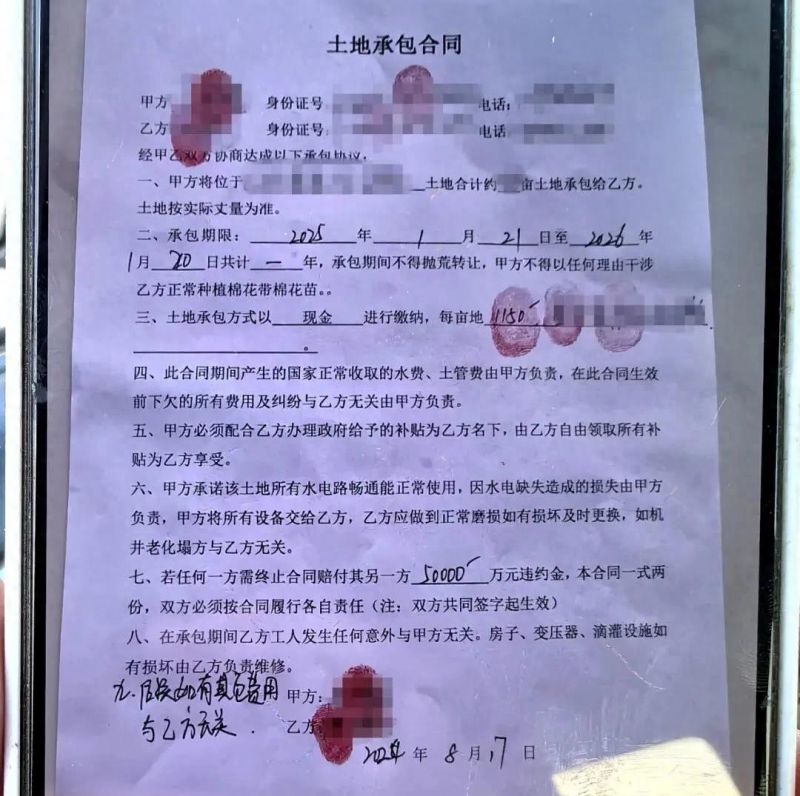 土地承包合同
甲方 身份证号 电话：
乙方 身份证号 电话
经甲乙双方协商达成以下承包协议，
一、甲方将位于 土地合计约 亩土地承包给乙方。
土地按实际丈量为准。
二、承包期限：2025年1月21日至2026年
1月20日共计一年，承包期间不得抛荒转让，甲方不得以任何理由干涉
乙方正常种植棉花带棉花苗。。
三、土地承包方式以现金进行缴纳，每亩地1150
。
四、此合同期间产生的国家正常收取的水费、土管费由甲方负责，在此合同生效
前下欠的所有费用及纠纷与乙方无关由甲方负责。
五、甲方必须配合乙方办理政府给予的补贴为乙方名下，由乙方自由领取所有补
贴为乙方享受。
六、甲方承诺该土地所有水电路畅通能正常使用，因水电缺失造成的损失由甲方
负责，甲方将所有设备交给乙方，乙方应做到正常磨损如有损坏及时更换，如机
井老化塌方与乙方无关。
七、若任何一方需终止合同赔付其另一方50000万元违约金，本合同一式两
份，双方必须按合同履行各自责任（注：双方共同签字起生效）
八、在承包期间乙方工人发生任何意外与甲方无关。房子、变压器、滴灌设施如
有损坏由乙方负责维修。
九、后续如有其它费用
与乙方无关．
甲方：
乙方：
2024年8月17日